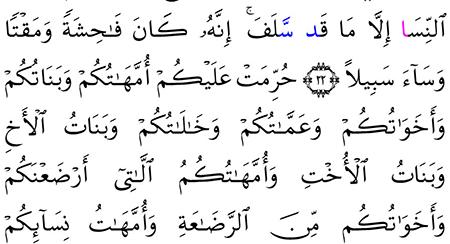 ٱلنِّسَا إِلَّا مَا قَد سَّلَفَ ۚ إِنَّهُۥ كَانَ فَٰحِشَةً وَمَقْتًا
وَسَآءَ سَبِيلاً ﴿٢٢﴾ حُرِّمَتْ عَلَيْكُمْ أُمَّهَٰتُكُمْ وَبَنَاتُكُمْ
وَأَخَوَٰتُكُمْ وَعَمَّٰتُكُمْ وَخَٰلَٰتُكُمْ وَبَنَاتُ ٱلْأَخِ
وَبَنَاتُ ٱلْأُخْتِ وَأُمَّهَٰتُكُمُ ٱلَّٰتِىٓ أَرْضَعْنَكُمْ
وَأَخَوَٰتُكُم مِّنَ ٱلرَّضَٰعَةِ وَأُمَّهَٰتُ نِسَآئِكُمْ